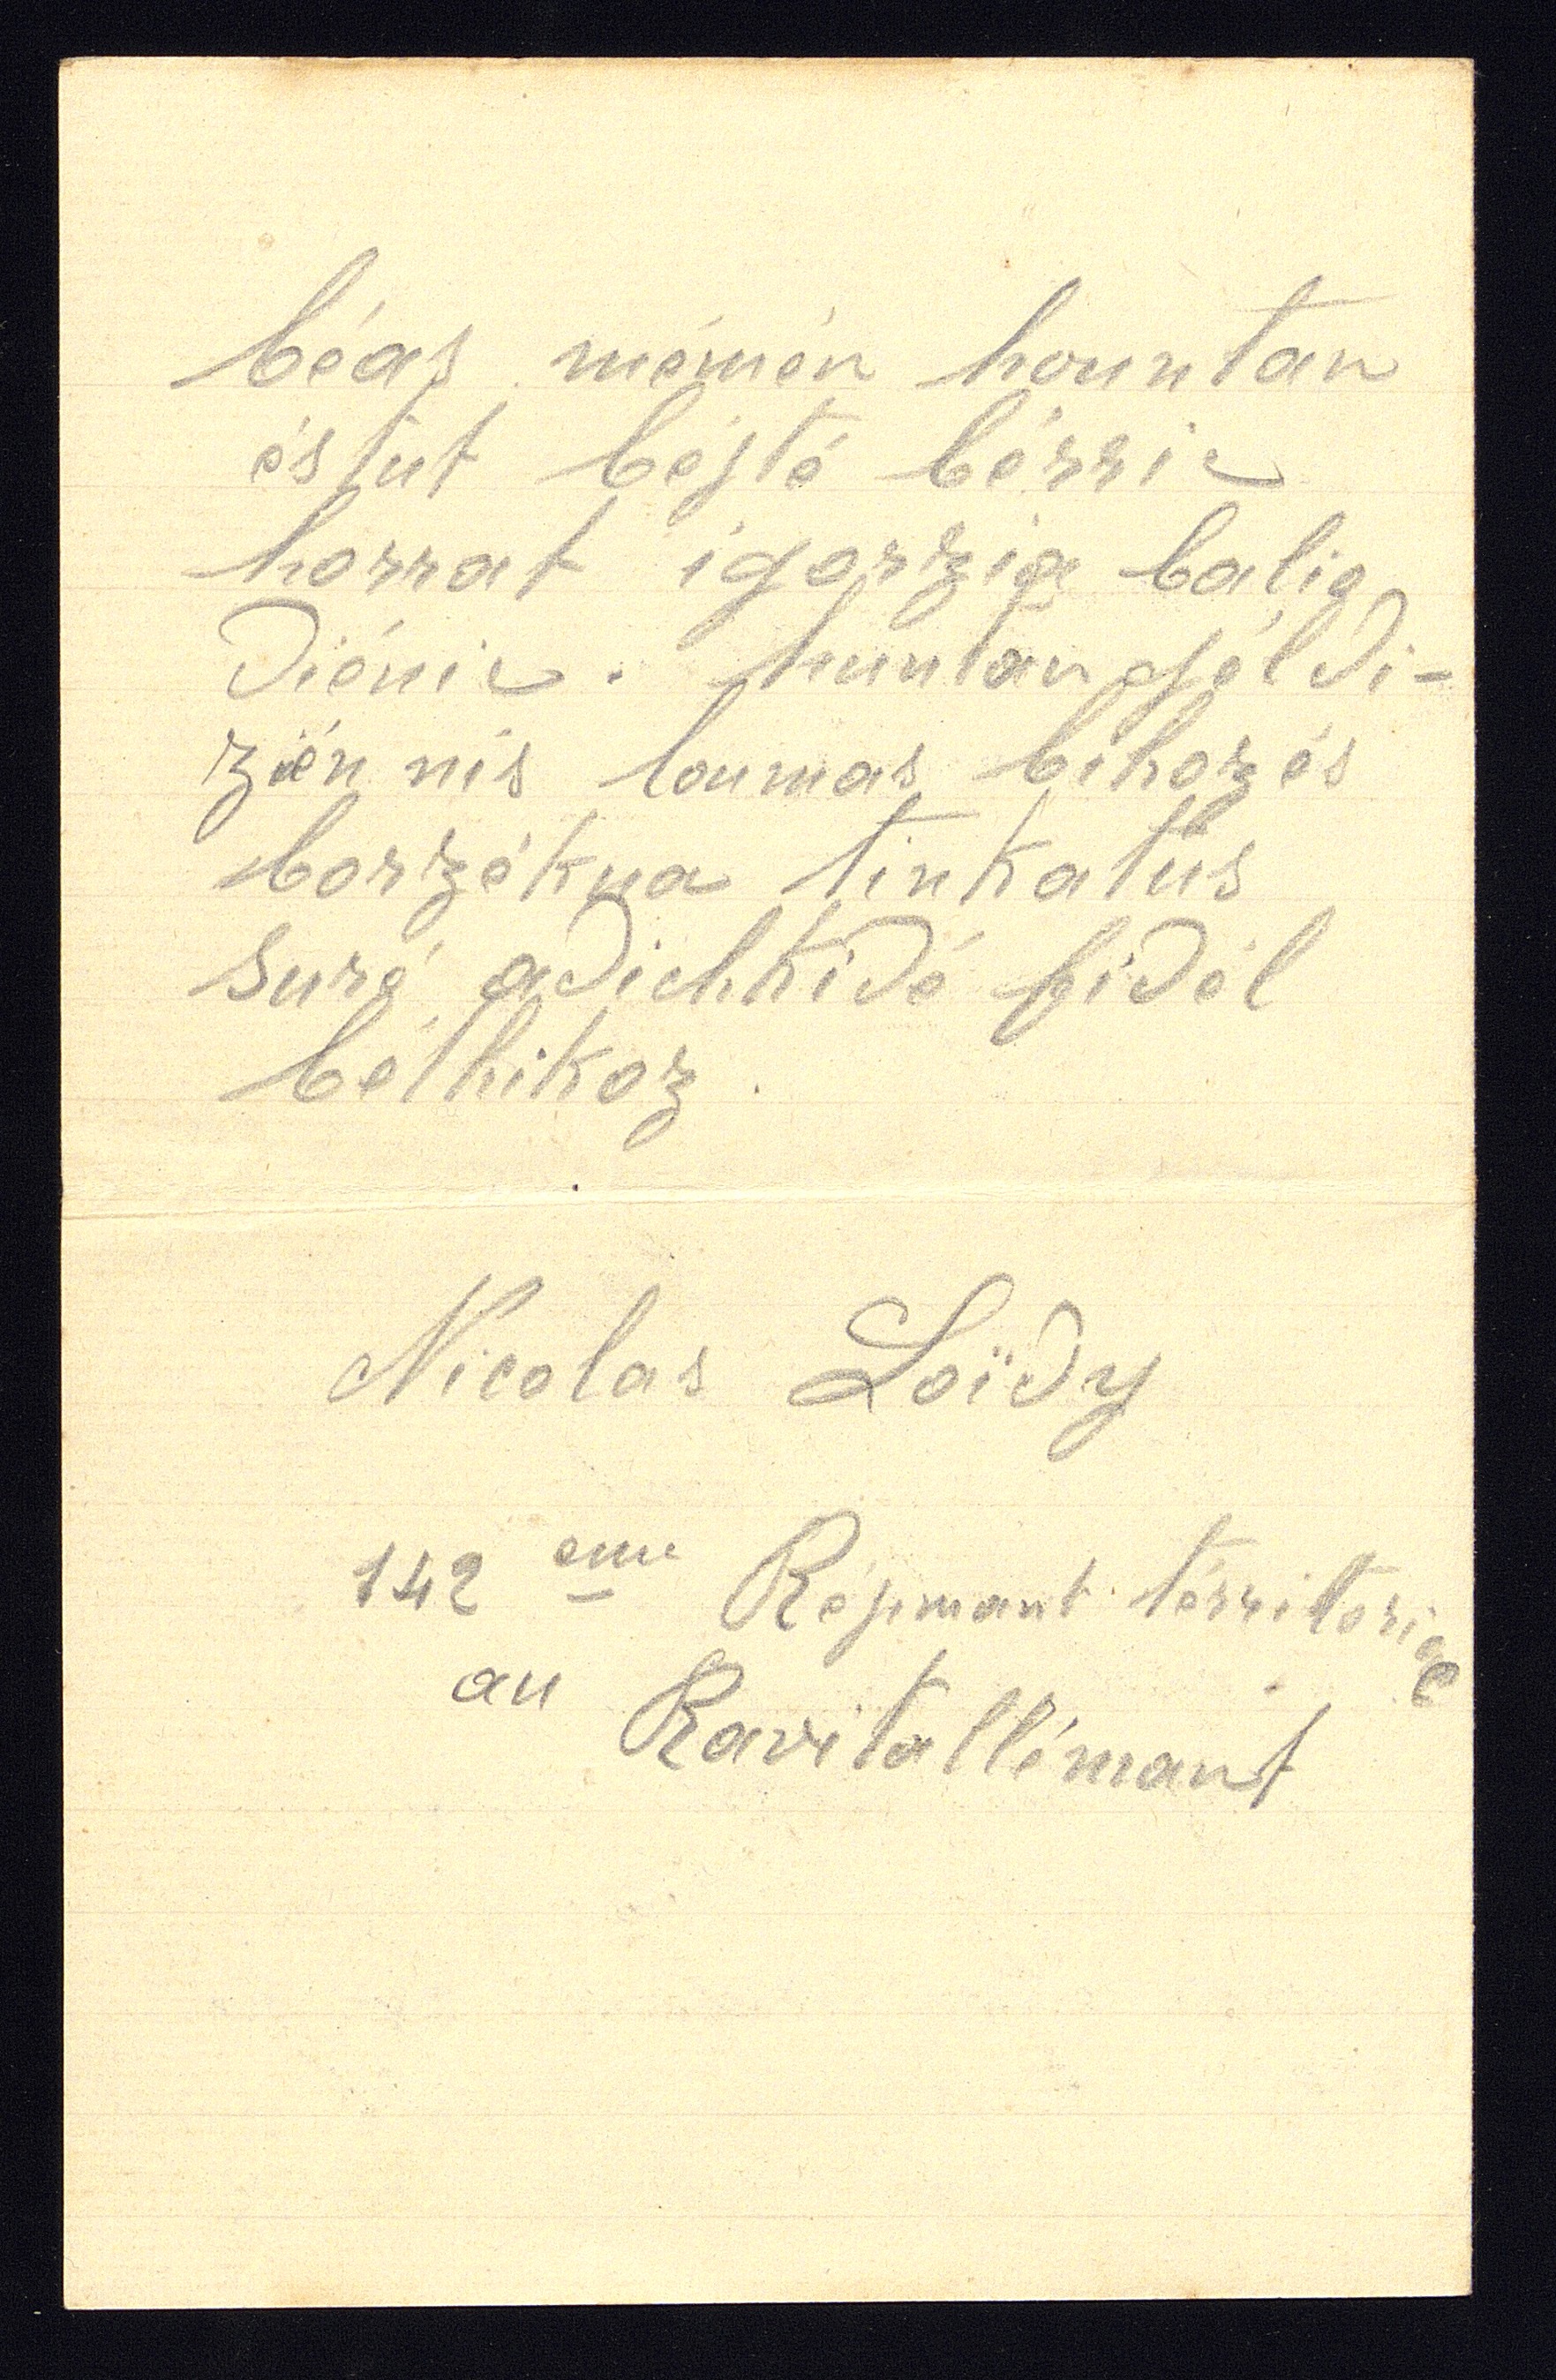 béas mémén hountan
éstut béjté bérric
horrat igorzia balio
diénic. huntan géldi-
zién nis loumas bihozés
borzékua tinkatus
suré adichkidé fidél
béthikoz.
Nicolas Loïdy
142 eme Régimant térritoriae
au Ravitallémant